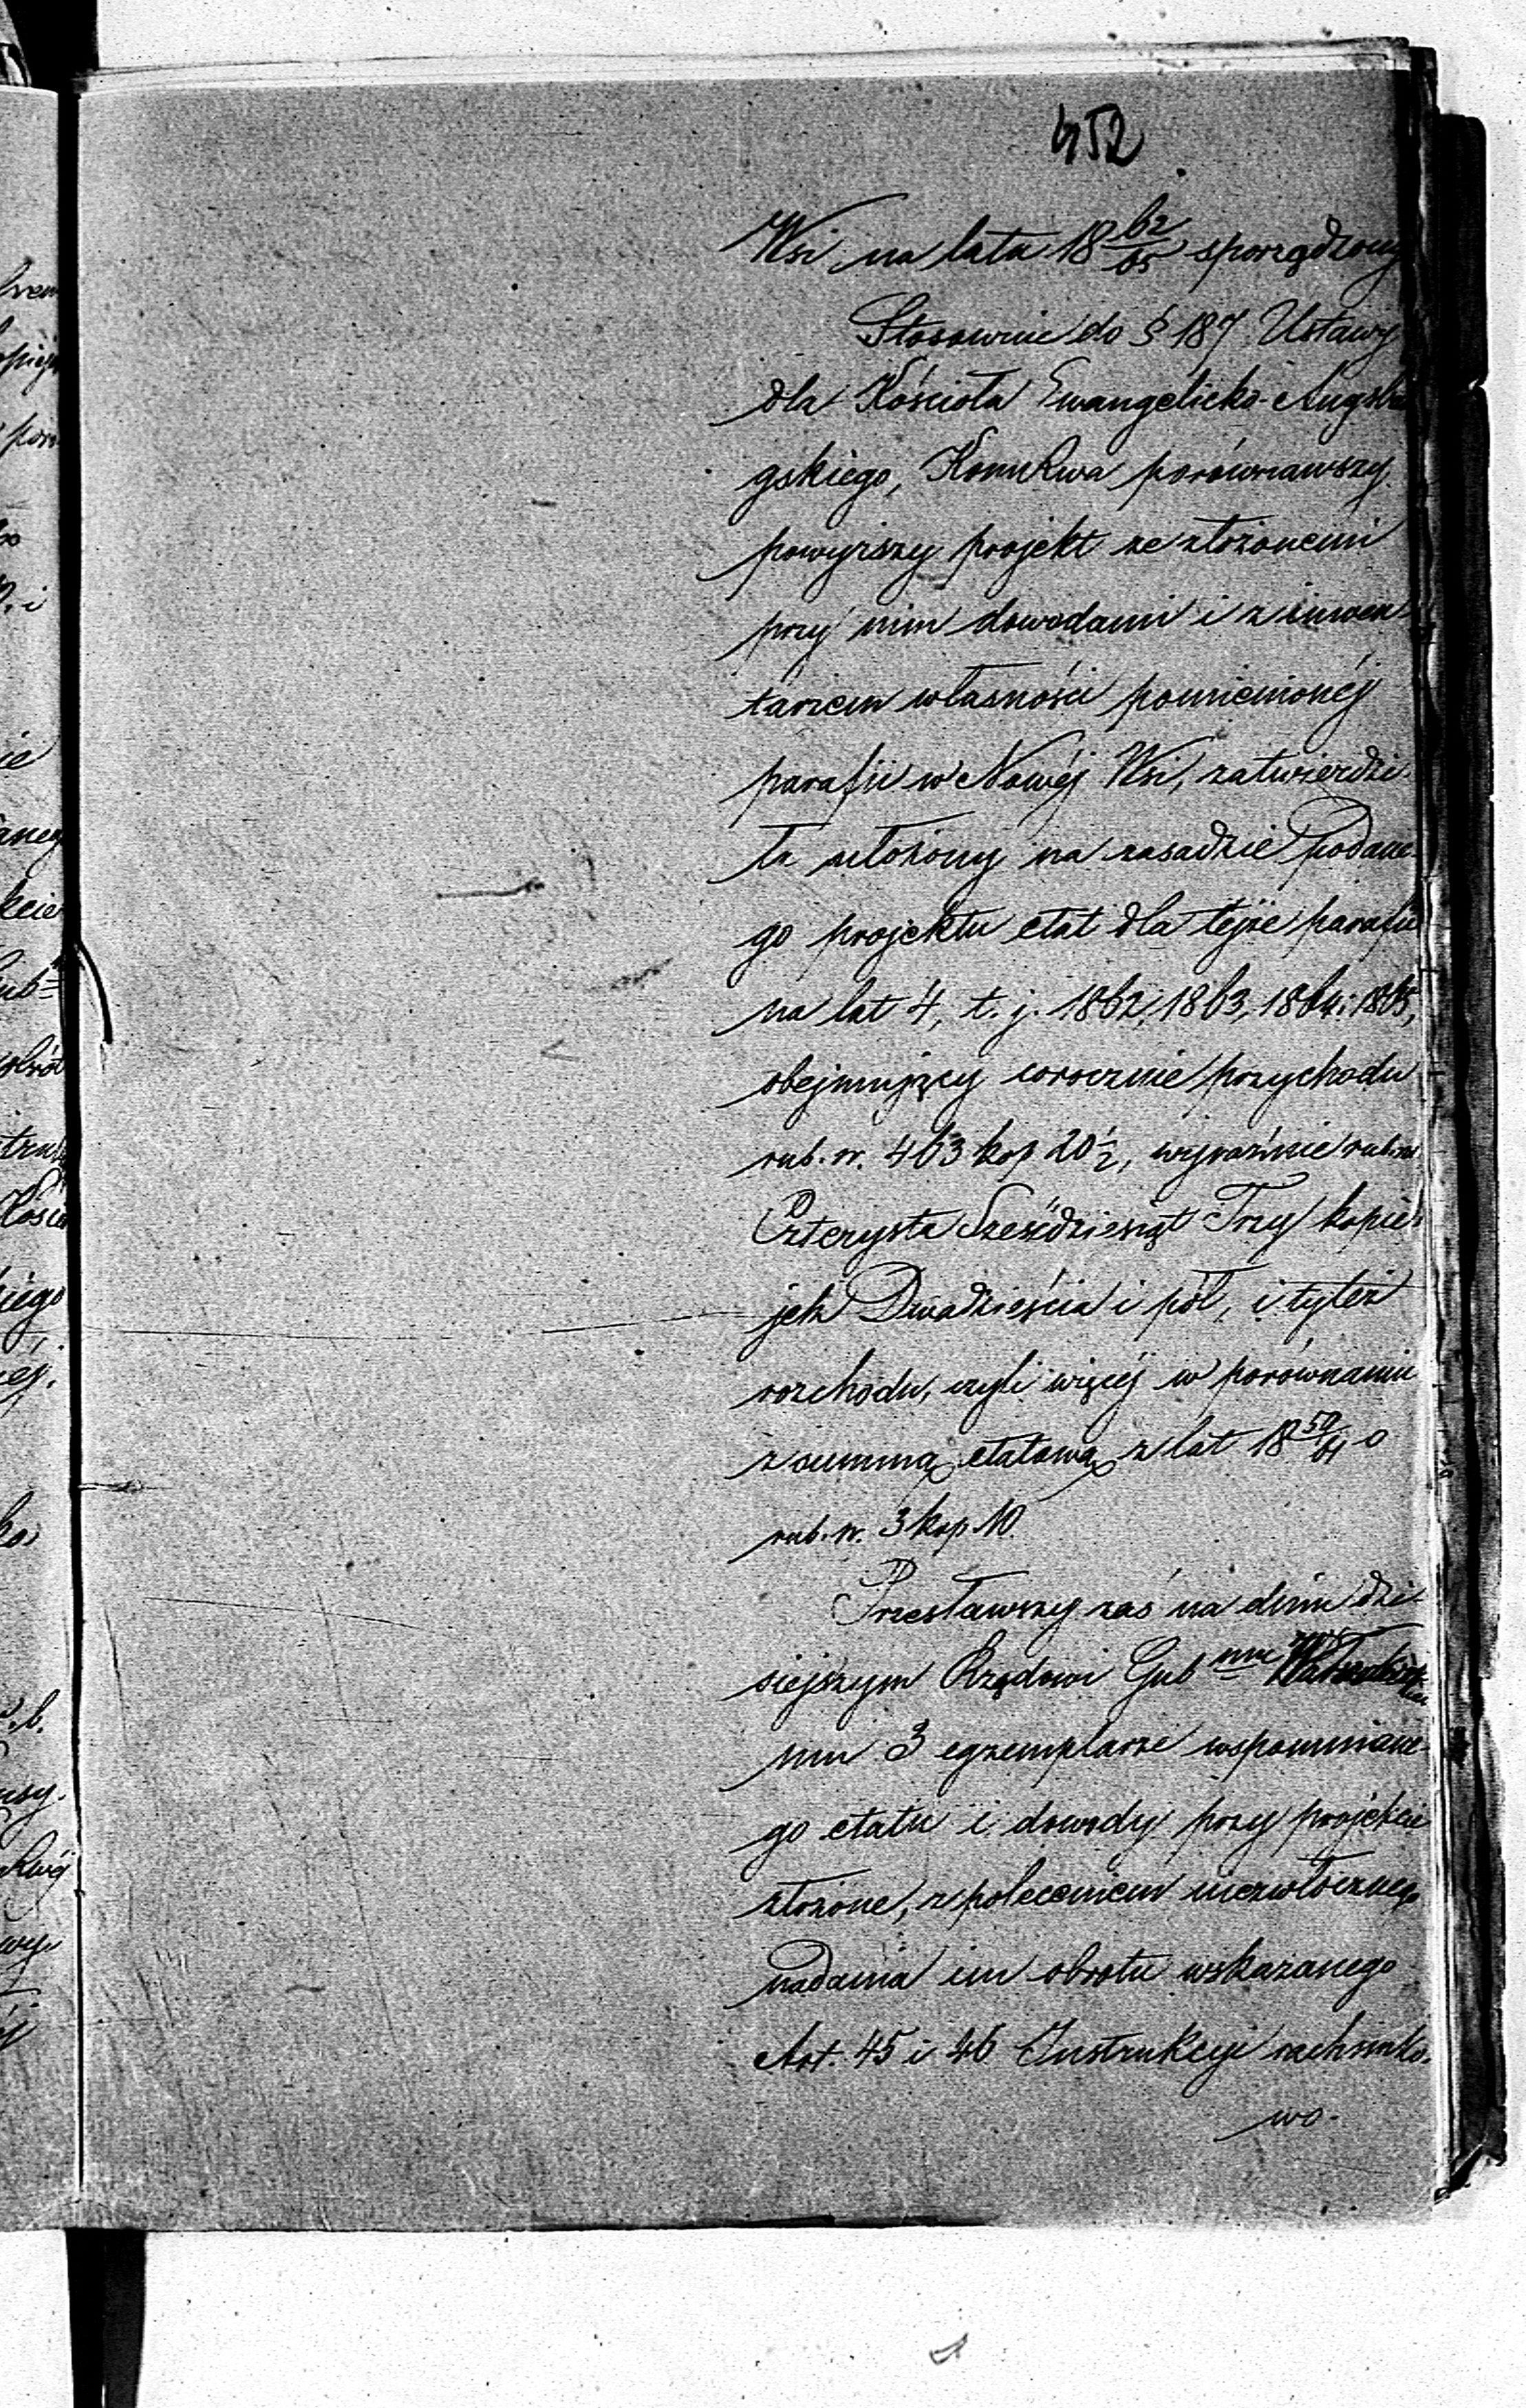 452
Wsi na lata 18 62/65 sporządzony
Stosownie do § 187 Ustawy
dla Kościoła Ewangelicko-Augsbur
gskiego, KommRwa porównawszy
powyższy projekt ze złożonemi
przy nim dowodami i z inwen-
tarzem własności pomienionéj
parafii w Nowéj Wsi, zatwierdzi-
ła ułożony na zasadzie podane-
go projektu etat dla téjże parafii
na lat 4, t. j. 1862, 1863, 1864 i 1865,
obejmujący corocznie przychodu
rub. sr. 463 kop 20 1/2, wyraźnie rub. sr.
Czterysta Sześćdziesiąt Trzy kopie-
jek Dwadzieścia i pół, i tyleż
rozchodu, czyli więcéj w porównaniu
z summą etatową z lat 18 59/61 o
rub. sr. 3 kop. 10.
Przesławszy zaś na dniu dzi-
siejszym Rządowi Gub nmu
mu 3 egzemplarze wspomniane-
go etatu i dowody przy projekcie
złożone, z poleceniem niezwłocznego
nadania im obrotu wskazanego
Art. 45 i 46 Instrukcyi rachunko-
wo-